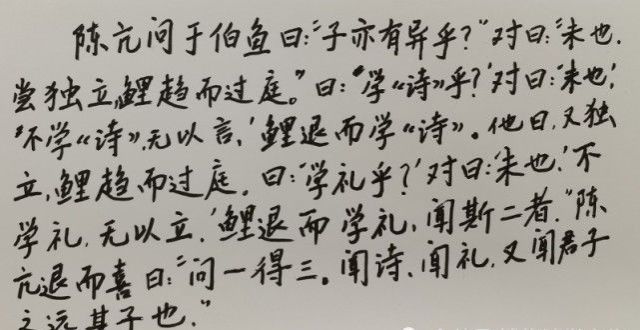 陈亢问于伯鱼曰:“子亦有异乎?”对曰:“未也.
尝独立,鲤趋而过庭。”曰:“学《诗》乎?’对曰:‘未也,’
“不学《诗》,无以言,’鲤退而学《诗》。他日,又独
立,鲤趋而过庭,曰:‘学礼乎?’对曰:‘未也.’不
学礼,无以立.’鲤退而学礼,闻斯二者.”陈
亢退而喜曰:“问一得三。闻诗、闻礼,又闻君子
之远其子也.”